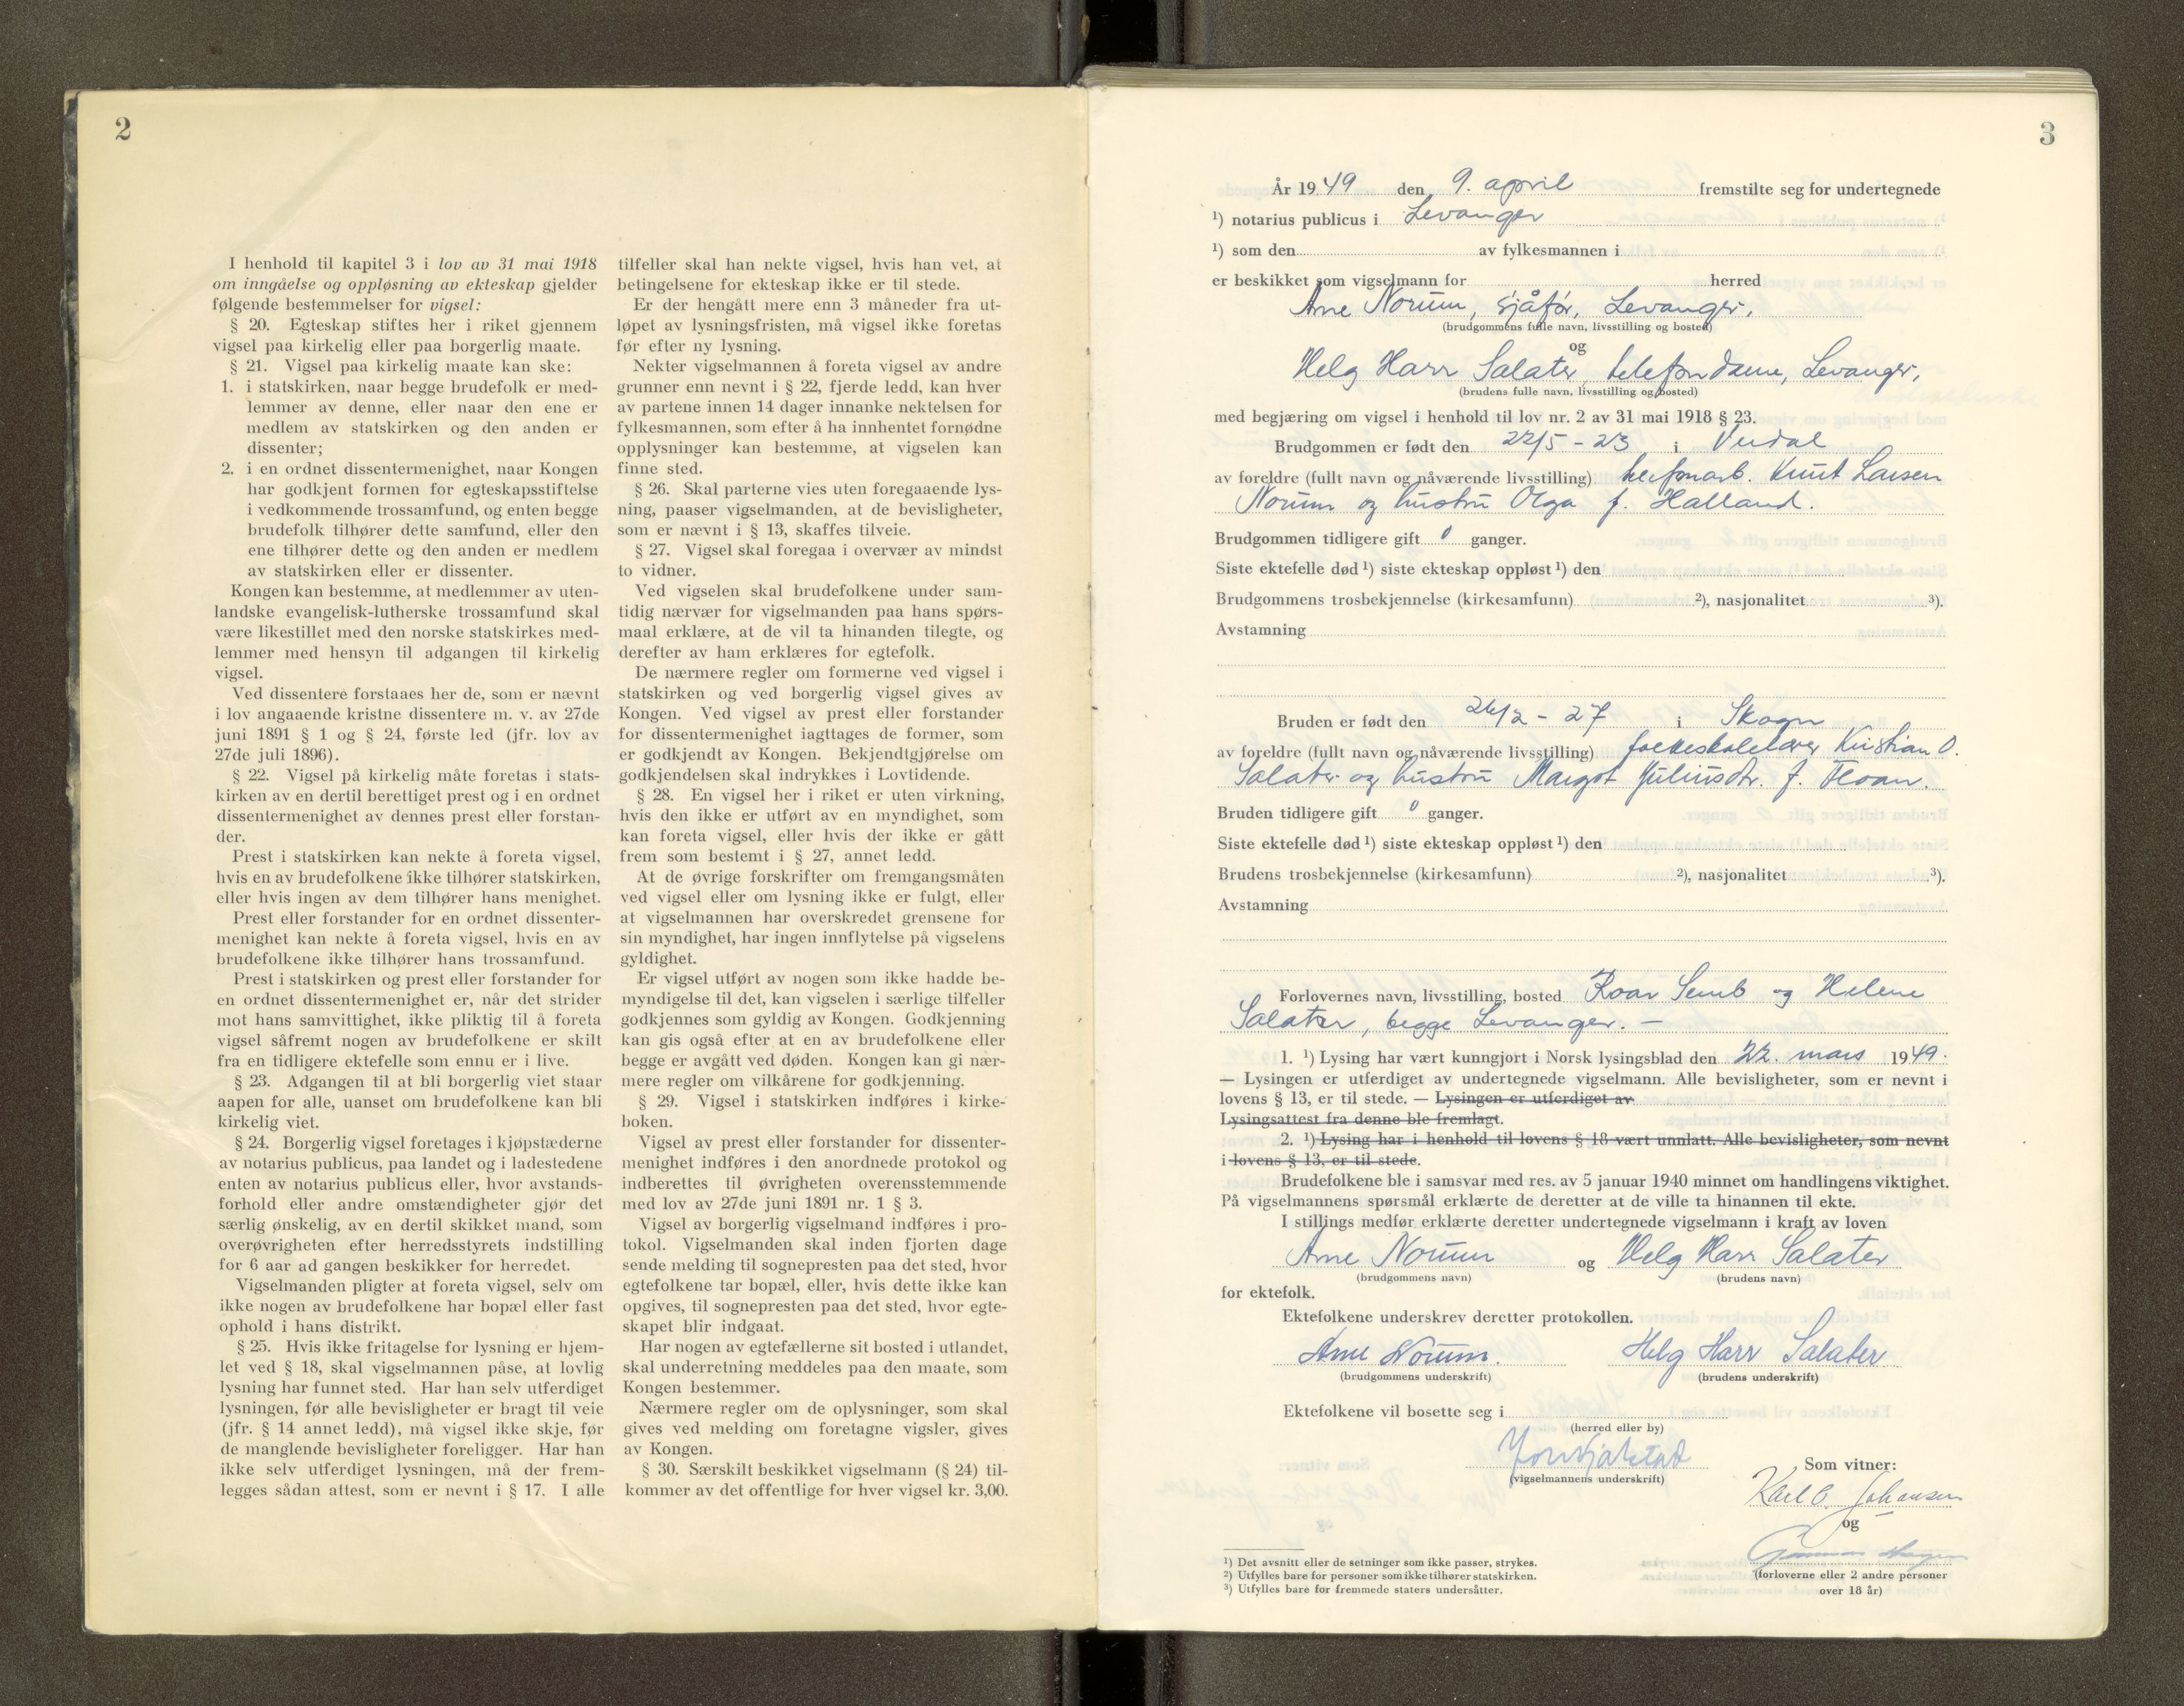 2
I henhold til kapitel 3 i lov av 31 mai 1918
om inngåelse og oppløsning av ekteskap gjelder
følgende bestemmelser for vigsel:
§ 20. Egteskap stiftes her i riket gjennem
vigsel paa kirkelig eller paa borgerlig maate.
§ 21. Vigsel paa kirkelig maate kan ske:
1. i statskirken, naar begge brudefolk er med-
lemmer av denne, eller naar den ene er
medlem av statskirken og den anden er
dissenter;
2. i en ordnet dissentermenighet, naar Kongen
har godkjent formen for egteskapsstiftelse
i vedkommende trossamfund, og enten begge
brudefolk tilhører dette samfund, eller den
ene tilhører dette og den anden er medlem
av statskirken eller er dissenter.
Kongen kan bestemme, at medlemmer av uten-
landske evangelisk-lutherske trossamfund skal
være likestillet med den norske statskirkes med-
lemmer med hensyn til adgangen til kirkelig
vigsel.
Ved dissentere forstaaes her de, som er nævnt
i lov angaaende kristne dissentere m. v. av 27de
juni 1891 § 1 og § 24, første led (jfr. lov av
27de juli 1896).
§ 22. Vigsel på kirkelig måte foretas i stats-
kirken av en dertil berettiget prest og i en ordnet
dissentermenighet av dennes prest eller forstan-
der.
Prest i statskirken kan nekte å foreta vigsel,
hvis en av brudefolkene ikke tilhører statskirken,
eller hvis ingen av dem tilhører hans menighet.
Prest eller forstander for en ordnet dissenter-
menighet kan nekte å foreta vigsel, hvis en av
brudefolkene ikke tilhører hans trossamfund.
Prest i statskirken og prest eller forstander for
en ordnet dissentermenighet er, når det strider
mot hans samvittighet, ikke pliktig til å foreta
vigsel såfremt nogen av brudefolkene er skilt
fra en tidligere ektefelle som ennu er i live.
§ 23. Adgangen til at bli borgerlig viet staar
aapen for alle, uanset om brudefolkene kan bli
kirkelig viet.
§ 24. Borgerlig vigsel foretages i kjøpstæderne
av notarius publicus, paa landet og i ladestedene
enten av notarius publicus eller, hvor avstands-
forhold eller andre omstændigheter gjør det
særlig ønskelig, av en dertil skikket mand, som
overøvrigheten efter herredsstyrets indstilling
for 6 aar ad gangen beskikker for herredet.
Vigselmanden pligter at foreta vigsel, selv om
ikke nogen av brudefolkene har bopæl eller fast
ophold i hans distrikt.
§ 25. Hvis ikke fritagelse for lysning er hjem-
let ved § 18, skal vigselmannen påse, at lovlig
lysning har funnet sted. Har han selv utferdiget
lysningen, før alle bevisligheter er bragt til veie
(jfr. § 14 annet ledd), må vigsel ikke skje, før
de manglende bevisligheter foreligger. Har han
ikke selv utferdiget lysningen, må der frem-
legges sådan attest, som er nevnt i § 17. I alle
tilfeller skal han nekte vigsel, hvis han vet, at
betingelsene for ekteskap ikke er til stede.
Er der hengått mere enn 3 måneder fra ut-
løpet av lysningsfristen, må vigsel ikke foretas
før efter ny lysning.
Nekter vigselmannen å foreta vigsel av andre
grunner enn nevnt i § 22, fjerde ledd, kan hver
av partene innen 14 dager innanke nektelsen for
fylkesmannen, som efter å ha innhentet fornødne
opplysninger kan bestemme, at vigselen kan
finne sted.
§ 26. Skal parterne vies uten foregaaende lys-
ning, paaser vigselmanden, at de bevisligheter,
som er nævnt i § 13, skaffes tilveie.
§ 27. Vigsel skal foregaa i overvær av mindst
to vidner.
Ved vigselen skal brudefolkene under sam-
tidig nærvær for vigselmanden paa hans spørs-
maal erklære, at de vil ta hinanden tilegte, og
derefter av ham erklæres for egtefolk.
De nærmere regler om formerne ved vigsel i
statskirken og ved borgerlig vigsel gives av
Kongen. Ved vigsel av prest eller forstander
for dissentermenighet iagttages de former, som
er godkjendt av Kongen. Bekjendtgjørelse om
godkjendelsen skal indrykkes i Lovtidende.
§ 28. En vigsel her i riket er uten virkning,
hvis den ikke er utført av en myndighet, som
kan foreta vigsel, eller hvis der ikke er gått
frem som bestemt i § 27, annet ledd.
At de øvrige forskrifter om fremgangsmåten
ved vigsel eller om lysning ikke er fulgt, eller
at vigselmannen har overskredet grensene for
sin myndighet, har ingen innflytelse på vigselens
gyldighet.
Er vigsel utført av nogen som ikke hadde be-
myndigelse til det, kan vigselen i særlige tilfeller
godkjennes som gyldig av Kongen. Godkjenning
kan gis også efter at en av brudefolkene eller
begge er avgått ved døden. Kongen kan gi nær-
mere regler om vilkårene for godkjenning.
§ 29. Vigsel i statskirken indføres i kirke-
boken.
Vigsel av prest eller forstander for dissenter-
menighet indføres i den anordnede protokol og
indberettes til øvrigheten overensstemmende
med lov av 27de juni 1891 nr. 1 § 3.
Vigsel av borgerlig vigselmand indføres i pro-
tokol. Vigselmanden skal inden fjorten dage
sende melding til sognepresten paa det sted, hvor
egtefolkene tar bopæl, eller, hvis dette ikke kan
opgives, til sognepresten paa det sted, hvor egte-
skapet blir indgaat.
Har nogen av egtefællerne sit bosted i utlandet,
skal underretning meddeles paa den maate, som
Kongen bestemmer.
Nærmere regler om de oplysninger, som skal
gives ved melding om foretagne vigsler, gives
av Kongen.
§ 30. Særskilt beskikket vigselmann (§ 24) til-
kommer av det offentlige for hver vigsel kr. 3,00.
3
År 1949 den 9. april fremstilte seg for undertegnede
¹) notarius publicus i Levanger
¹) som den av fylkesmannen i
er beskikket som vigselmann for herred
Arne Norum, sjåfør, Levanger,
(brudgommens fulle navn, livsstilling og bosted)
og
Helg Harr Salater, telefondame, Levanger,
(brudens fulle navn, livsstilling og bosted)
med begjæring om vigsel i henhold til lov nr. 2 av 31 mai 1918 § 23.
Brudgommen er født den 22/5 - 23 i Verdal
av foreldre (fullt navn og nåværende livsstilling) Knut Larsen
Norum og hustru Olga f. Halland.
Brudgommen tidligere gift 0 ganger.
Siste ektefelle død ¹) siste ekteskap oppløst ¹) den
Brudgommens trosbekjennelse (kirkesamfunn) ²), nasjonalitet ³).
Avstamning
Bruden er født den 26/2 - 27 i Skogn
av foreldre (fullt navn og nåværende livsstilling) folkeskolelærer Kristian O.
Salater og hustru Margot Juliusdtr. f. Floan.
Bruden tidligere gift 0 ganger.
Siste ektefelle død ¹) siste ekteskap oppløst ¹) den
Brudens trosbekjennelse (kirkesamfunn) ²), nasjonalitet ³).
Avstamning
Forlovernes navn, livsstilling, bosted Roar Semb og Helene
Salater, begge Levanger. —
1. ¹) Lysing har vært kunngjort i Norsk lysingsblad den 22. mars 1949.
— Lysingen er utferdiget av undertegnede vigselmann. Alle bevisligheter, som er nevnt i
lovens § 13, er til stede. — Lysingen er utferdiget av
Lysingsattest fra denne ble fremlagt.
2. ¹) Lysing har i henhold til lovens § 18 vært unnlatt. Alle bevisligheter, som nevnt
i lovens § 13, er til stede.
Brudefolkene ble i samsvar med res. av 5 januar 1940 minnet om handlingens viktighet.
På vigselmannens spørsmål erklærte de deretter at de ville ta hinannen til ekte.
I stillings medfør erklærte deretter undertegnede vigselmann i kraft av loven
Arne Norum og Helg Harr Salater
(brudgommens navn) (brudens navn)
for ektefolk.
Ektefolkene underskrev deretter protokollen.
Arne Norum. Helg Harr Salater
(brudgommens underskrift) (brudens underskrift)
Ektefolkene vil bosette seg i
(herred eller by)
(vigselmannens underskrift)
Som vitner:
Karl O. Johansen
og
(forloverne eller 2 andre personer
over 18 år)
¹) Det avsnitt eller de setninger som ikke passer, strykes.
²) Utfylles bare for personer som ikke tilhører statskirken.
³) Utfylles bare for fremmede staters undersåtter.